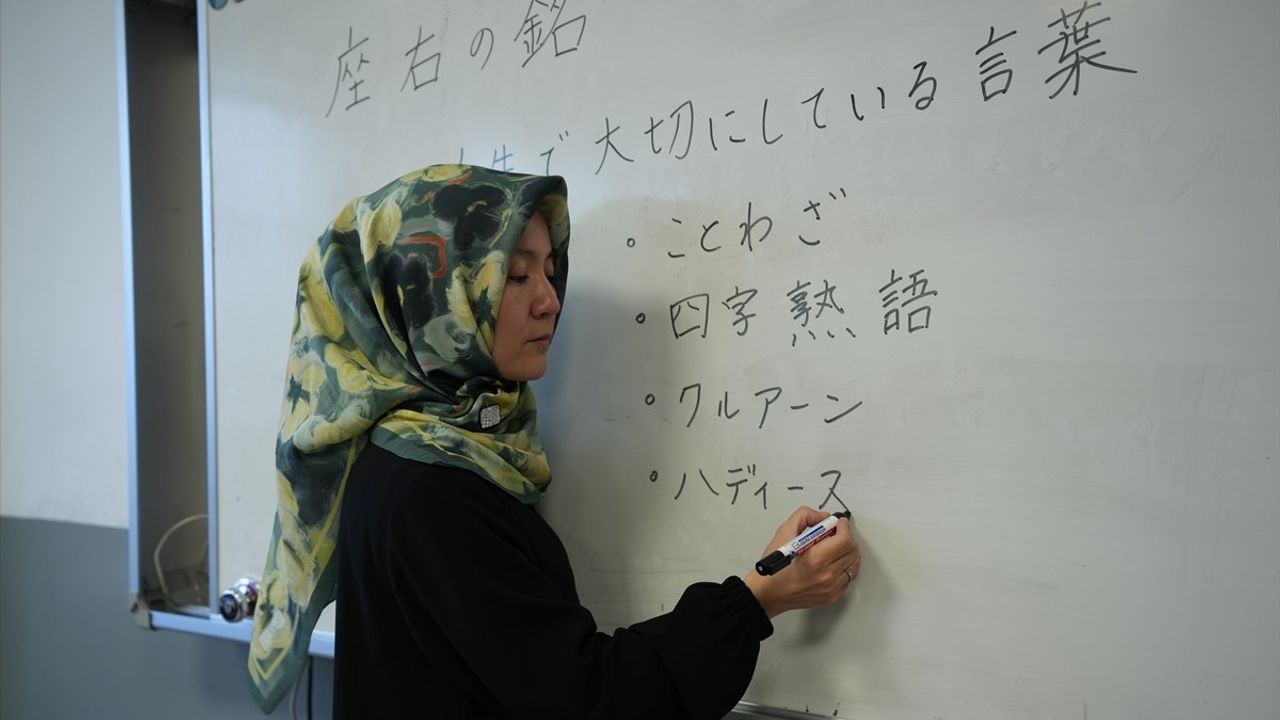 座右の銘
で大切にしている言葉
・ことわざ
・四字熟語
・クルアーン
・ハディース